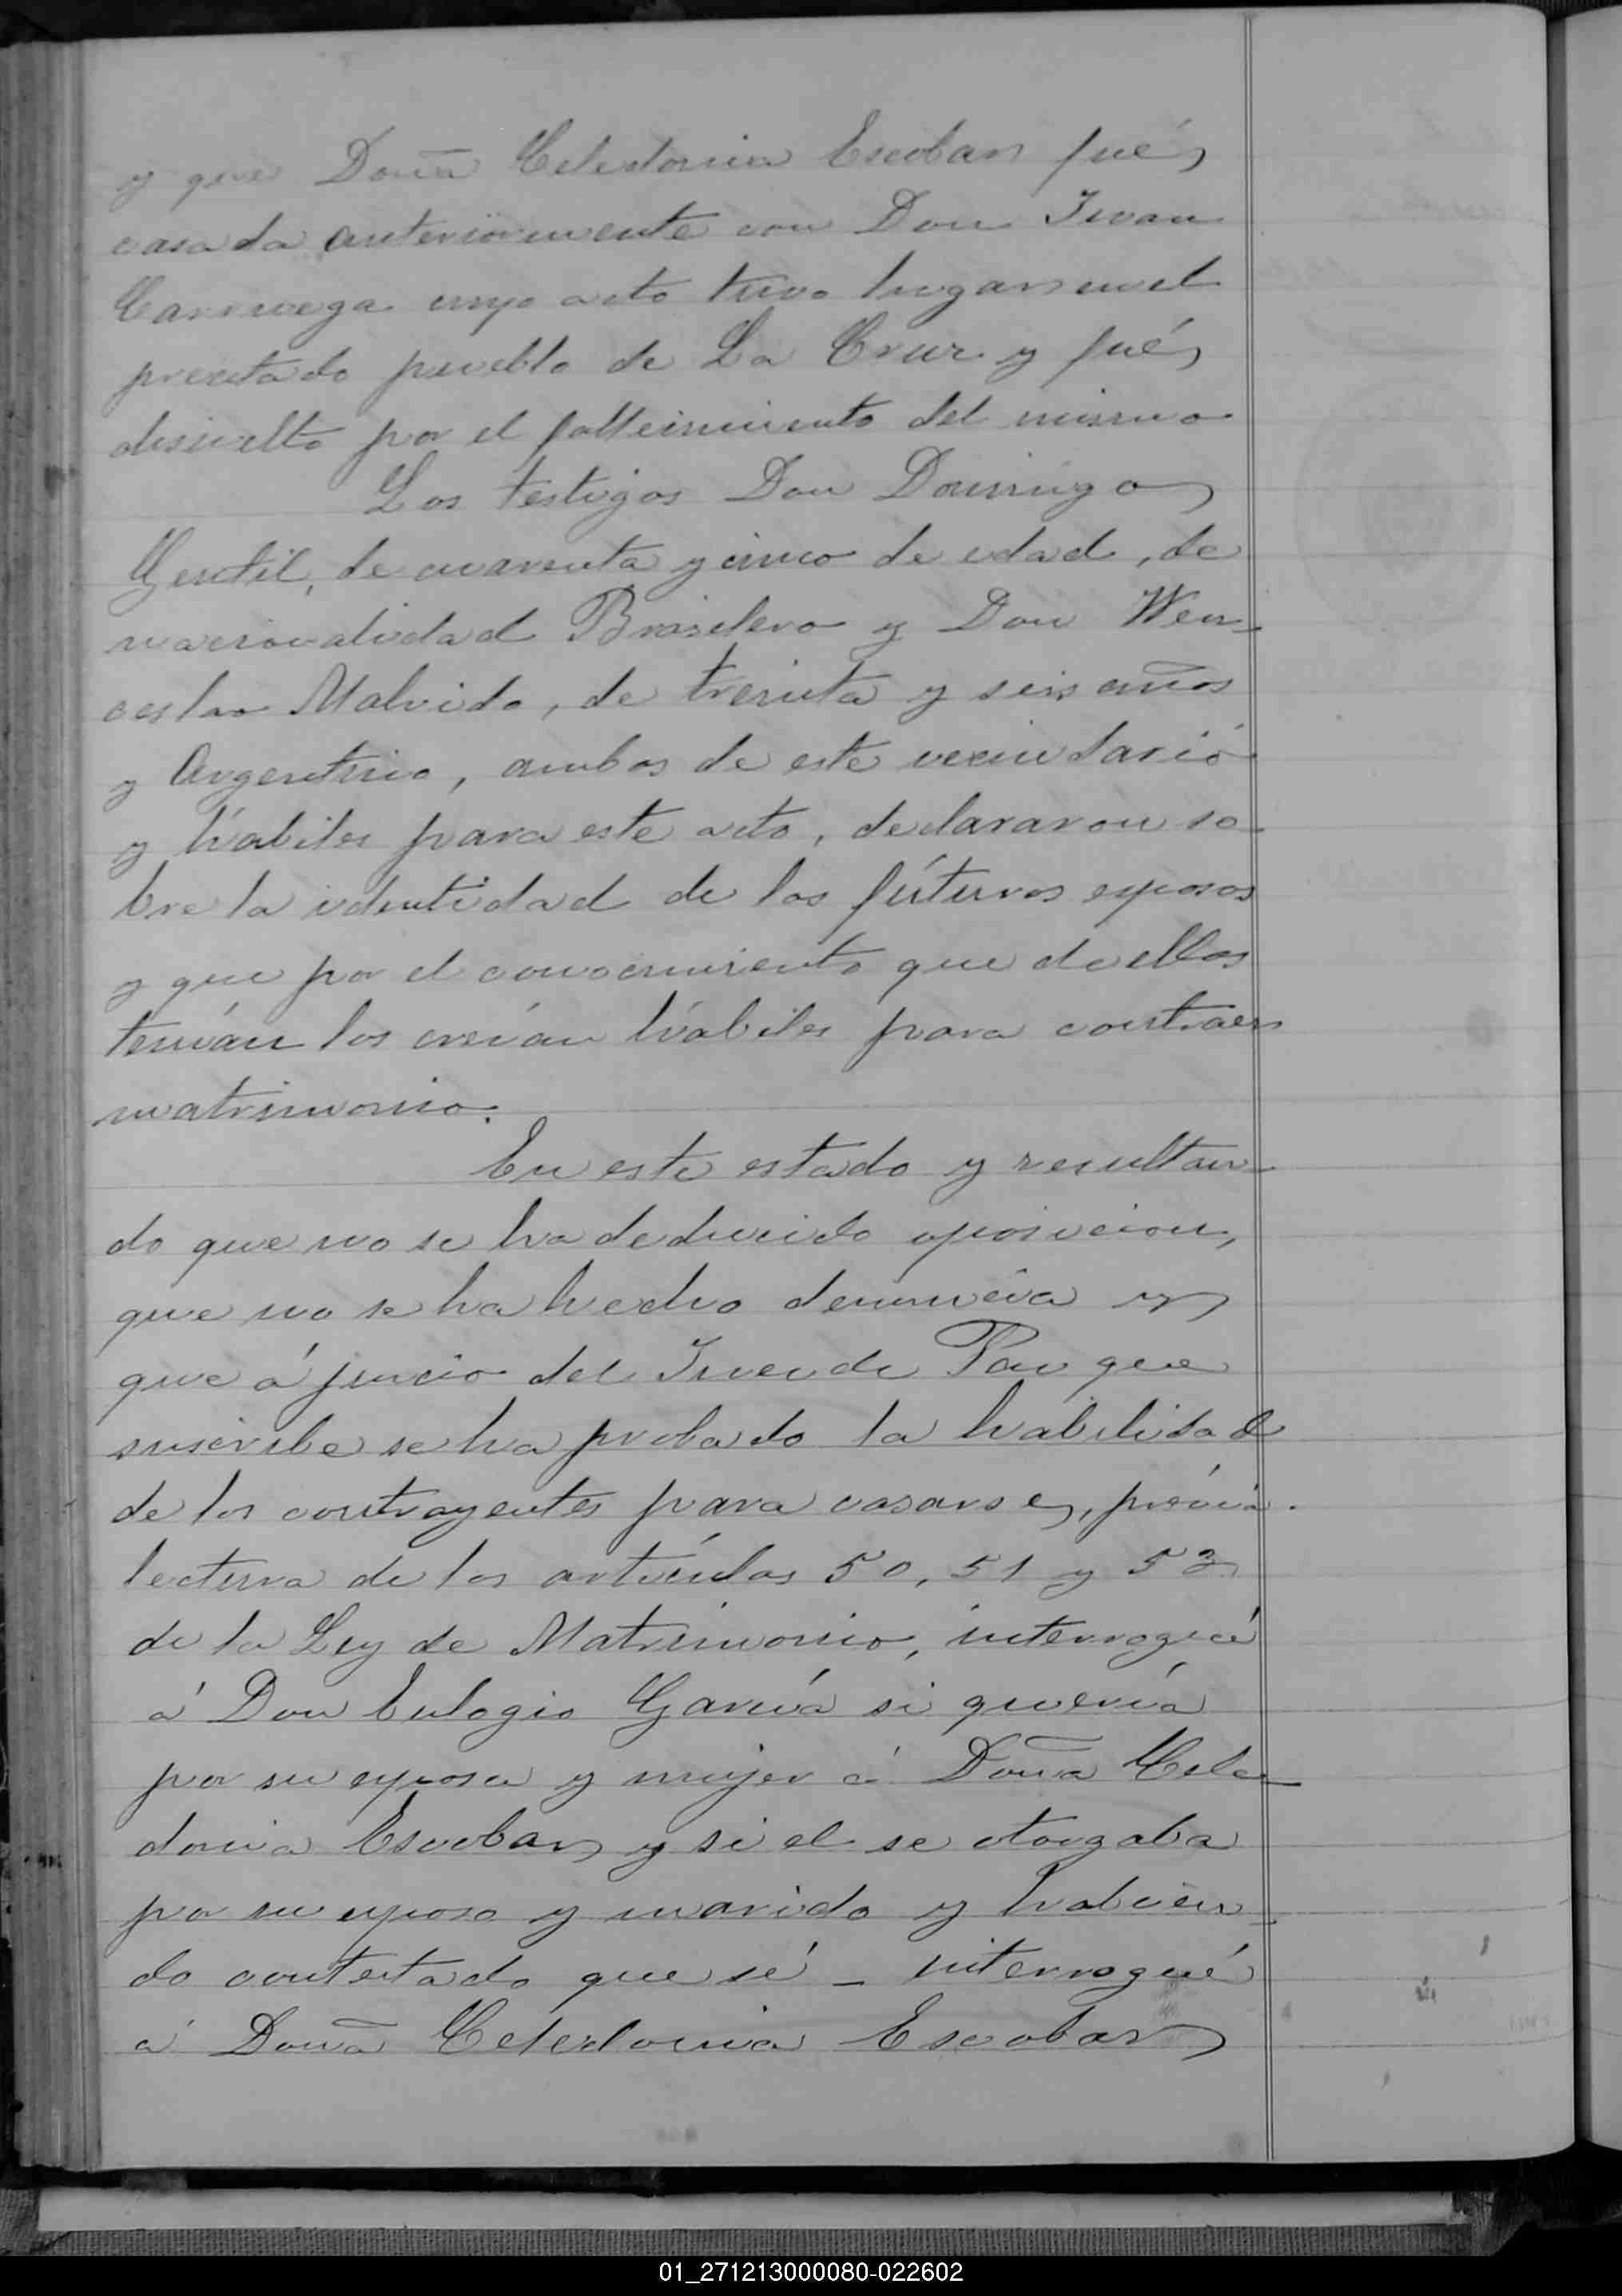 y que Doña Celedonia Escobar fué
casada anteriormente con Don Juan
cuyo acto tuvo lugar en el
precitado pueblo de La Cruz y fué
disuelto por el fallecimiento del mismo
Los testigos Don Domingo
Gentil, de cuarenta y cinco de edad, de
nacionalidad Brasilero y Don Wen-
ceslao Malvido, de treinta y seis años
y Argentino, ambos de este vecindario
y hábiles para este acto, declararon so-
bre la identidad de los fúturos esposos
y que por el conocimiento que de ellos
tenían los creían hábiles para contraer
matrimonio.
En este estado y resultan-
do que no se ha deducido oposicion,
que no se ha hecho denuncia y
que á juicio del Juez de Paz que
suscribe se ha probado la habilidad
de los contrayentes para casarse, prévia
lectura de los artículos 50, 51 y 53
de la Ley de Matrimonio, interrogué
á Don Eulogio García si quería
por su esposa y mujer á Doña Cele-
donia Escobar y si el se otorgaba
por su esposo y marido y habien-
do contestado que sí - interrogué
á Doña Celedonia Escobar
01_271213000080-022602